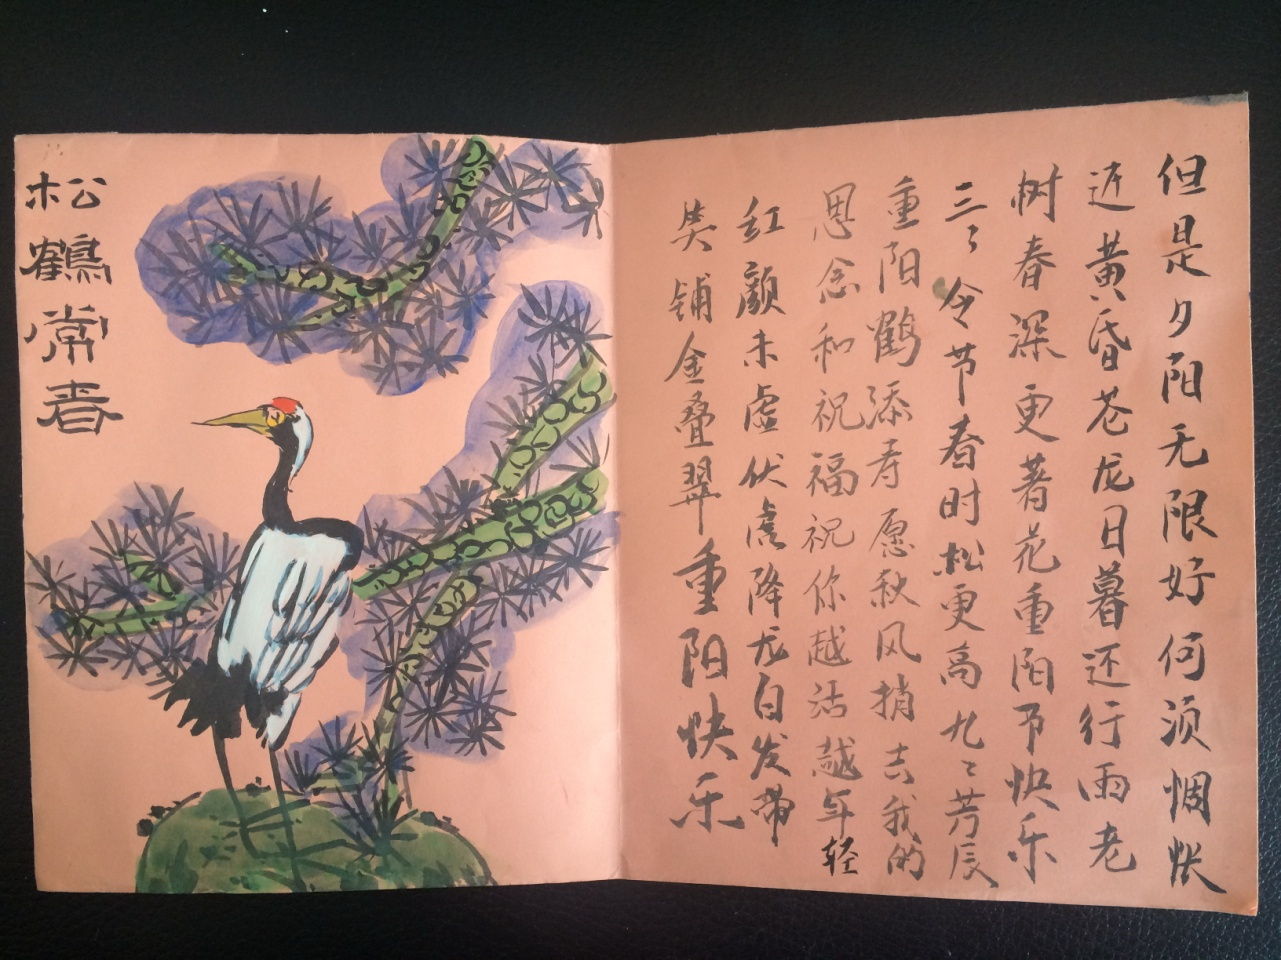 但是夕阳无限好何须惆怅
近黄昏苍龙日暮还行雨老
树春深更著花重阳节快乐
三々令节春时松更高九々芳辰
重阳鹤添寿愿秋风捎去我的
思念和祝福祝你越活越年轻
红颜未虚伏虎降龙白发带
笑铺金叠翠重阳快乐
松鹤常春